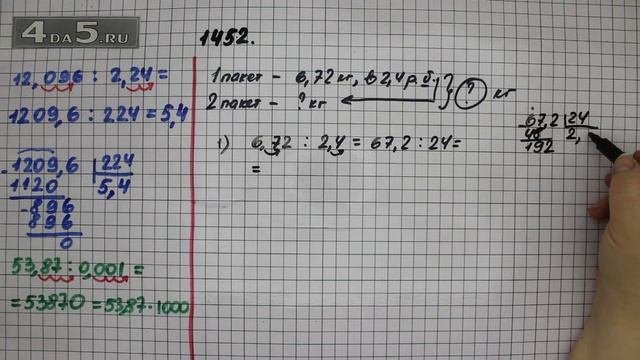 4DA5.RU
1452.
12,096 : 2,24 =
1209,6 : 224 = 5,4
- 1209,6 | 224
1120 5,4
- 896
896
0
53,87 : 0,001 =
= 53870 = 53,87 · 1000
1 пакет – 6,72 кг, в 2,4 р. б. } ? кг
2 пакет – ? кг
1) 6,72 : 2,4 = 67,2 : 24 =
=
67,2 | 24
48 2,
192